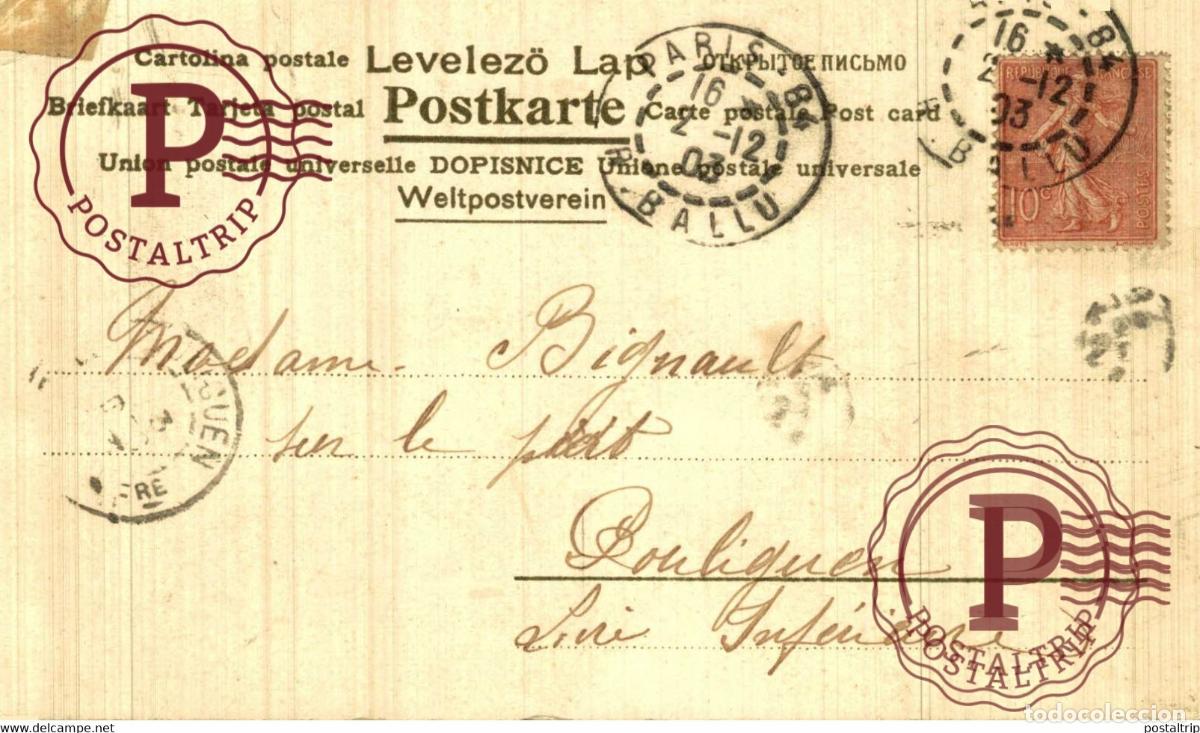 Cartolina postale Levelezö Lap ОТКРЫТОЕ ПИСЬМО
Briefkaart Tarjeta postal Postkarte Carte postale Post card
Union postale universelle DOPISNICE Unione postale universale
Weltpostverein
PARIS-84
16
2 -12
03
R. BALLU
PARIS-84
16
2 -12
03
R. BALLU
REPUBLIQUE FRANÇAISE
10c
POSTES
P
POSTALTRIP
Madame Bignault
sur le port
Pouliguen
Loire Inférieure
GUEN
RE
P
POSTALTRIP
POSTALTRIP
todocoleccion
www.delcampe.net
postaltrip